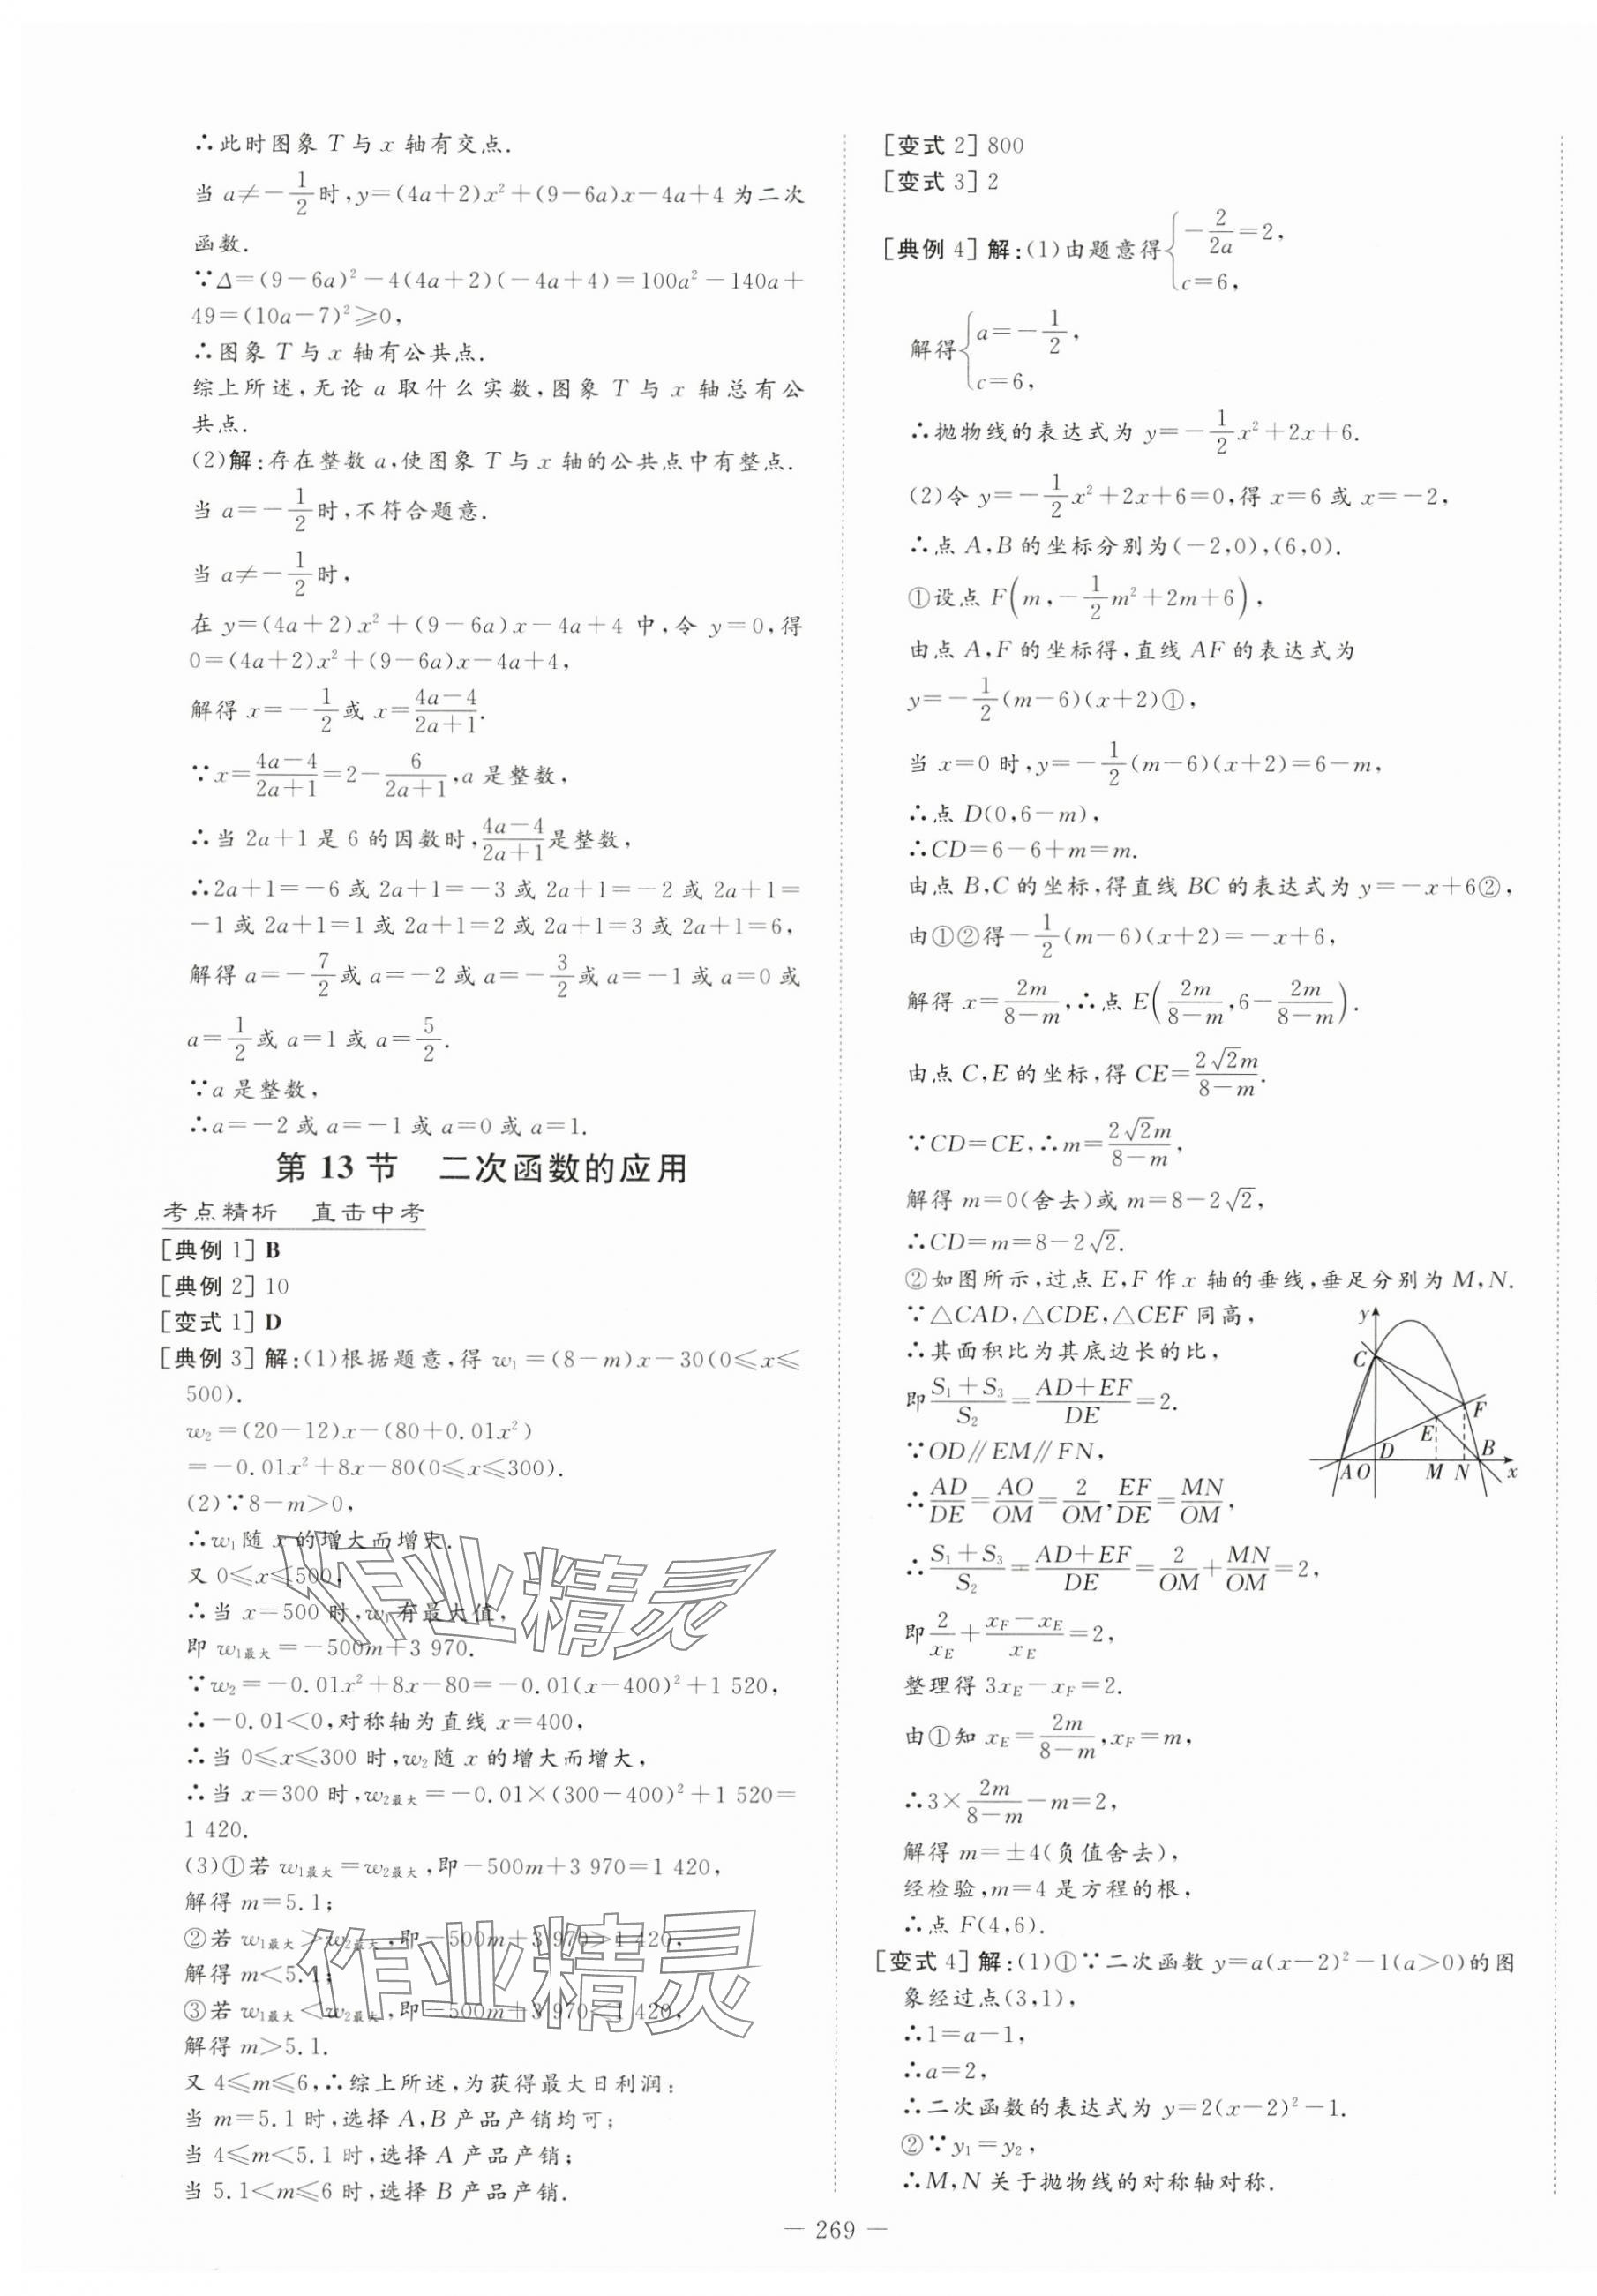 ∴此时图象 T 与 x 轴有交点.
当 a≠-1/2时,y=(4a+2)x²+(9-6a)x-4a+4 为二次
函数.
∵Δ=(9-6a)²-4(4a+2)(-4a+4)=100a²-140a+
49=(10a-7)²≥0,
∴图象 T 与 x 轴有公共点.
综上所述,无论 a 取什么实数,图象 T 与 x 轴总有公
共点.
(2)解:存在整数 a,使图象 T 与 x 轴的公共点中有整点.
当 a=-1/2时,不符合题意.
当 a≠-1/2时,
在 y=(4a+2)x²+(9-6a)x-4a+4 中,令 y=0,得
0=(4a+2)x²+(9-6a)x-4a+4,
解得 x=-1/2或 x=(4a-4)/(2a+1).
∵x=(4a-4)/(2a+1)=2-6/(2a+1),a 是整数,
∴当 2a+1 是 6 的因数时,(4a-4)/(2a+1)是整数,
∴2a+1=-6 或 2a+1=-3 或 2a+1=-2 或 2a+1=
-1 或 2a+1=1 或 2a+1=2 或 2a+1=3 或 2a+1=6,
解得 a=-7/2或 a=-2 或 a=-3/2或 a=-1 或 a=0 或
a=1/2或 a=1 或 a=5/2.
∵a 是整数,
∴a=-2 或 a=-1 或 a=0 或 a=1.
第 13 节 二次函数的应用
考点精析 直击中考
[典例 1] B
[典例 2] 10
[变式 1] D
[典例 3] 解:(1)根据题意,得 w₁=(8-m)x-30(0≤x≤
500).
w₂=(20-12)x-(80+0.01x²)
=-0.01x²+8x-80(0≤x≤300).
(2)∵8-m>0,
∴w₁随 x 的增大而增大.
又 0≤x≤500,
∴当 x=500 时,w₁有最大值,
即 w₁最大=-500m+3 970.
∵w₂=-0.01x²+8x-80=-0.01(x-400)²+1 520,
∴-0.01<0,对称轴为直线 x=400,
∴当 0≤x≤300 时,w₂随 x 的增大而增大,
∴当 x=300 时,w₂最大=-0.01×(300-400)²+1 520=
1 420.
(3)①若 w₁最大=w₂最大,即-500m+3 970=1 420,
解得 m=5.1;
②若 w₁最大>w₂最大,即-500m+3 970>1 420,
解得 m<5.1;
③若 w₁最大<w₂最大,即-500m+3 970<1 420,
解得 m>5.1.
又 4≤m≤6,∴综上所述,为获得最大日利润:
当 m=5.1 时,选择 A,B 产品产销均可;
当 4≤m<5.1 时,选择 A 产品产销;
当 5.1<m≤6 时,选择 B 产品产销.
[变式 2] 800
[变式 3] 2
[典例 4] 解:(1)由题意得{-2/(2a)=2,
c=6,
解得{a=-1/2,
c=6,
∴抛物线的表达式为 y=-1/2x²+2x+6.
(2)令 y=-1/2x²+2x+6=0,得 x=6 或 x=-2,
∴点 A,B 的坐标分别为(-2,0),(6,0).
①设点 F(m,-1/2m²+2m+6),
由点 A,F 的坐标得,直线 AF 的表达式为
y=-1/2(m-6)(x+2)①,
当 x=0 时,y=-1/2(m-6)(x+2)=6-m,
∴点 D(0,6-m),
∴CD=6-6+m=m.
由点 B,C 的坐标,得直线 BC 的表达式为 y=-x+6②,
由①②得-1/2(m-6)(x+2)=-x+6,
解得 x=2m/(8-m),∴点 E(2m/(8-m),6-2m/(8-m)).
由点 C,E 的坐标,得 CE=2√2m/(8-m).
∵CD=CE,∴m=2√2m/(8-m),
解得 m=0(舍去)或 m=8-2√2,
∴CD=m=8-2√2.
②如图所示,过点 E,F 作 x 轴的垂线,垂足分别为 M,N.
∵△CAD,△CDE,△CEF 同高,
∴其面积比为其底边长的比,
即(S₁+S₃)/S₂=(AD+EF)/DE=2.
∵OD∥EM∥FN,
∴AD/DE=AO/OM=2/OM,EF/DE=MN/OM,
∴(S₁+S₃)/S₂=(AD+EF)/DE=2/OM+MN/OM=2,
即2/x_E+(x_F-x_E)/x_E=2,
整理得 3x_E-x_F=2.
由①知 x_E=2m/(8-m),x_F=m,
∴3×2m/(8-m)-m=2,
解得 m=±4(负值舍去),
经检验,m=4 是方程的根,
∴点 F(4,6).
y
C
F
E
D
B
A O M N x
[变式 4] 解:(1)①∵二次函数 y=a(x-2)²-1(a>0)的图
象经过点(3,1),
∴1=a-1,
∴a=2,
∴二次函数的表达式为 y=2(x-2)²-1.
②∵y₁=y₂,
∴M,N 关于抛物线的对称轴对称.
作业精灵
作业精灵
— 269 —